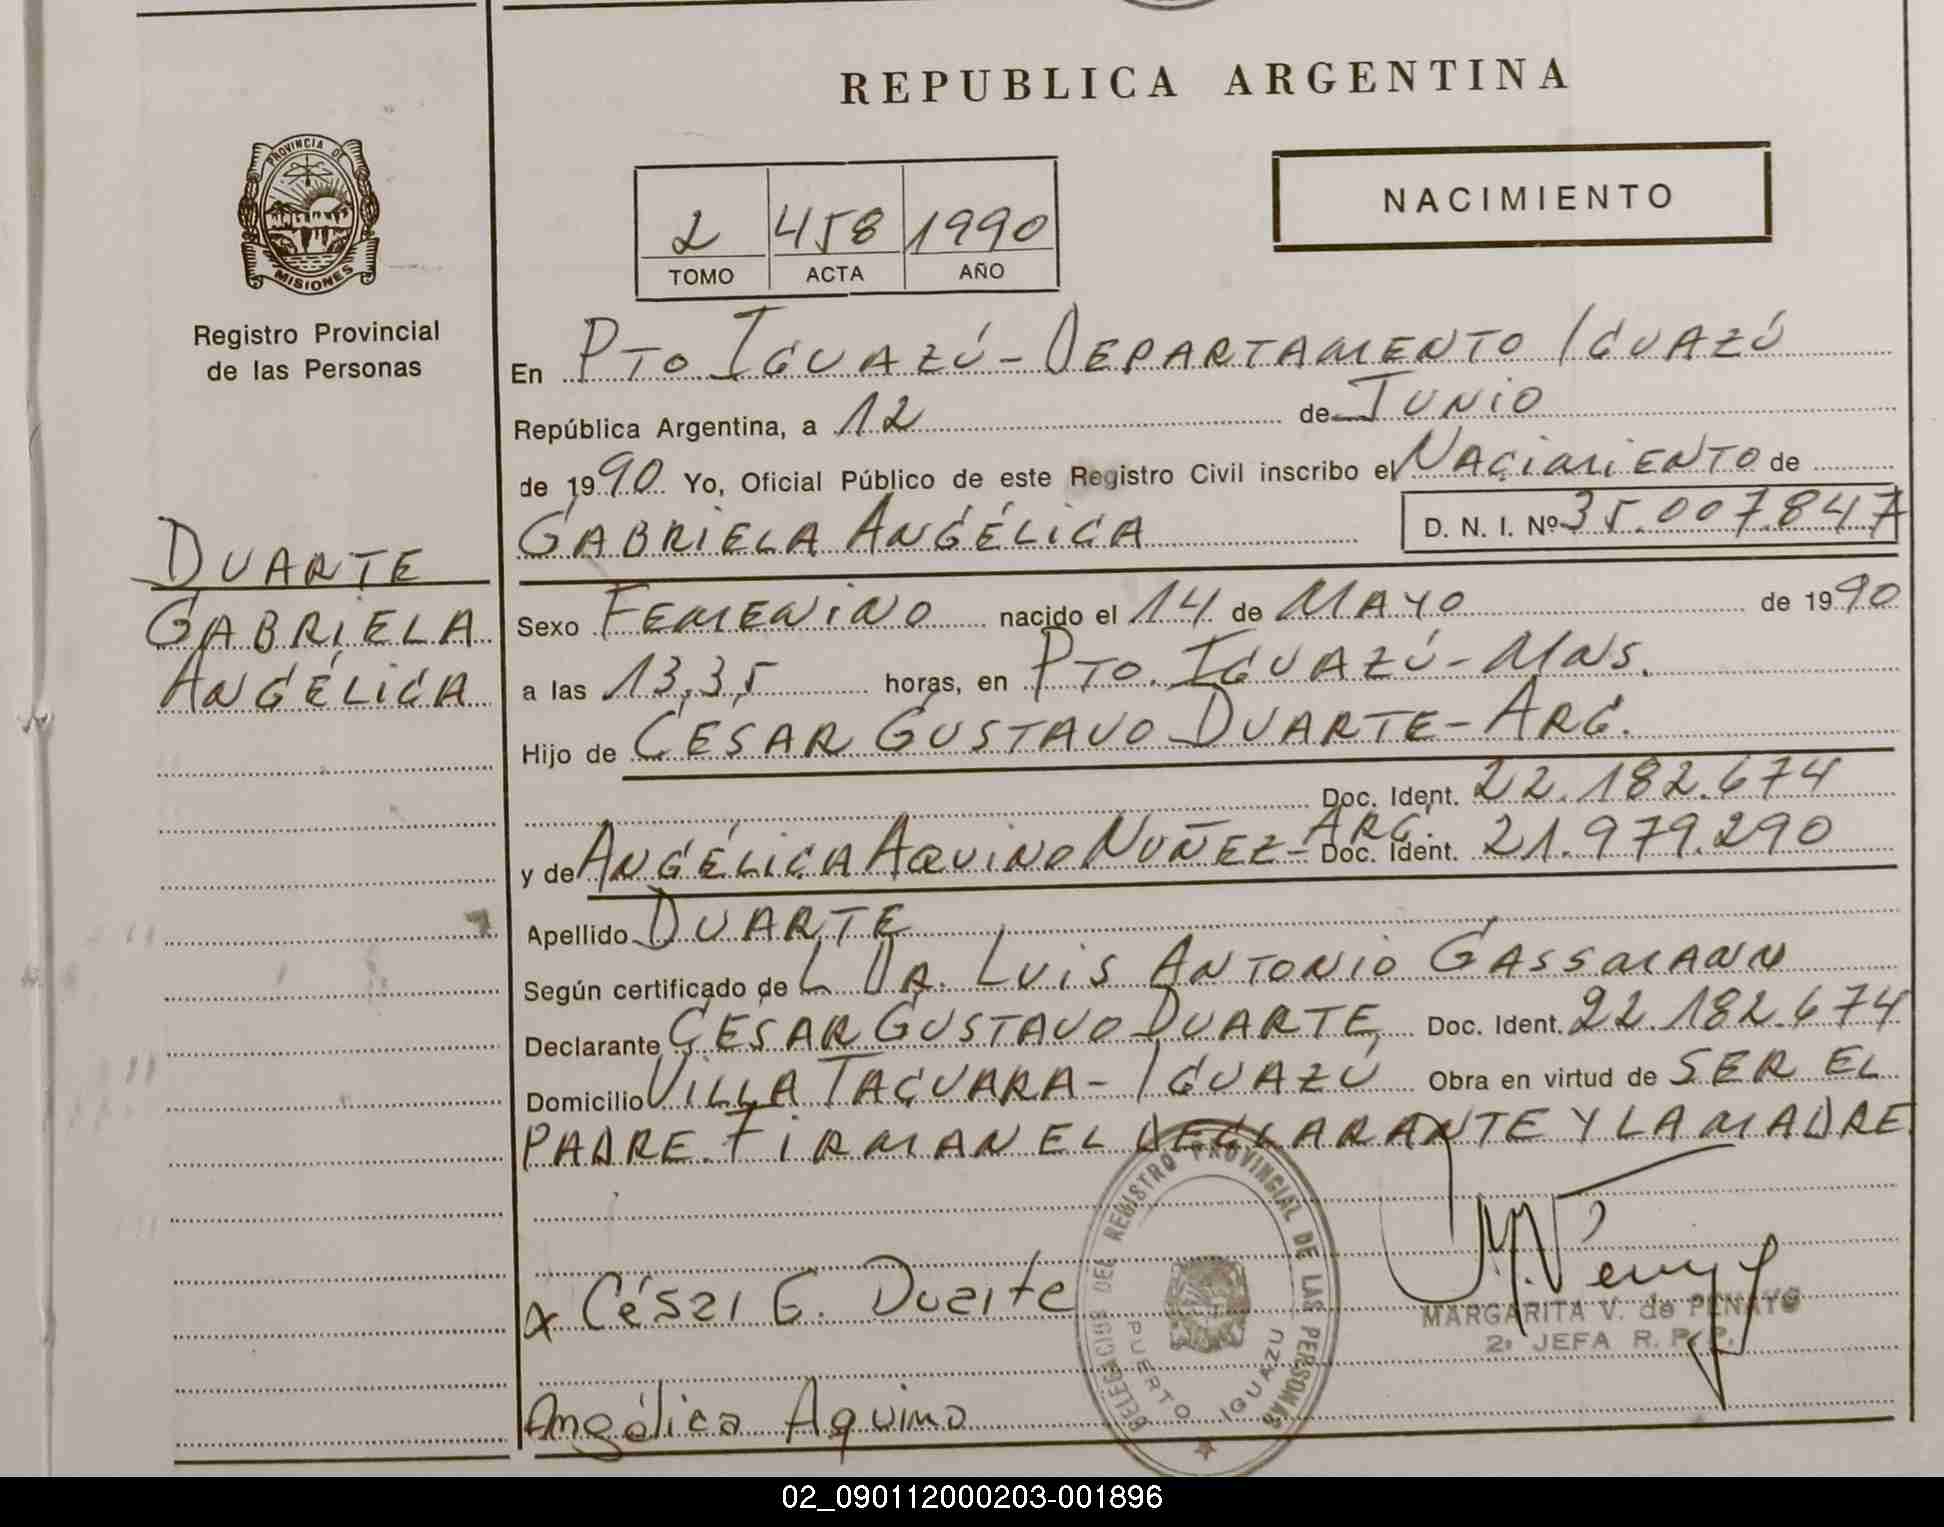 REPUBLICA ARGENTINA
PROVINCIA DE
MISIONES
Registro Provincial
de las Personas
2 458 1990
TOMO ACTA AÑO
NACIMIENTO
En PTO IGUAZÚ - DEPARTAMENTO IGUAZÚ
República Argentina, a 12 de JUNIO
de 1990 Yo, Oficial Público de este Registro Civil inscribo el NACIMIENTO de
GABRIELA ANGÉLICA D. N. I. Nº 35.007.847
DUARTE
GABRIELA
ANGÉLICA
Sexo FEMENINO nacido el 14 de MAYO de 1990
a las 13,35 horas, en PTO. IGUAZÚ - MNS.
Hijo de CESAR GUSTAVO DUARTE - ARG.
Doc. Ident. 22.182.674
y de ANGÉLICA AQUINO NUÑEZ - ARG. Doc. Ident. 21.979.290
Apellido DUARTE
Según certificado de L DR. LUIS ANTONIO GASSMANN
Declarante CESAR GUSTAVO DUARTE Doc. Ident. 22.182.674
Domicilio VILLA TACUARA - IGUAZÚ Obra en virtud de SER EL
PADRE. FIRMAN EL DECLARANTE Y LA MADRE
DELEGACION DEL REGISTRO PROVINCIAL DE LAS PERSONAS
PUERTO IGUAZU
x César G. Duarte
MARGARITA V. de PENAYO
2º JEFA R. P. P.
Angélica Aquino
02_090112000203-001896